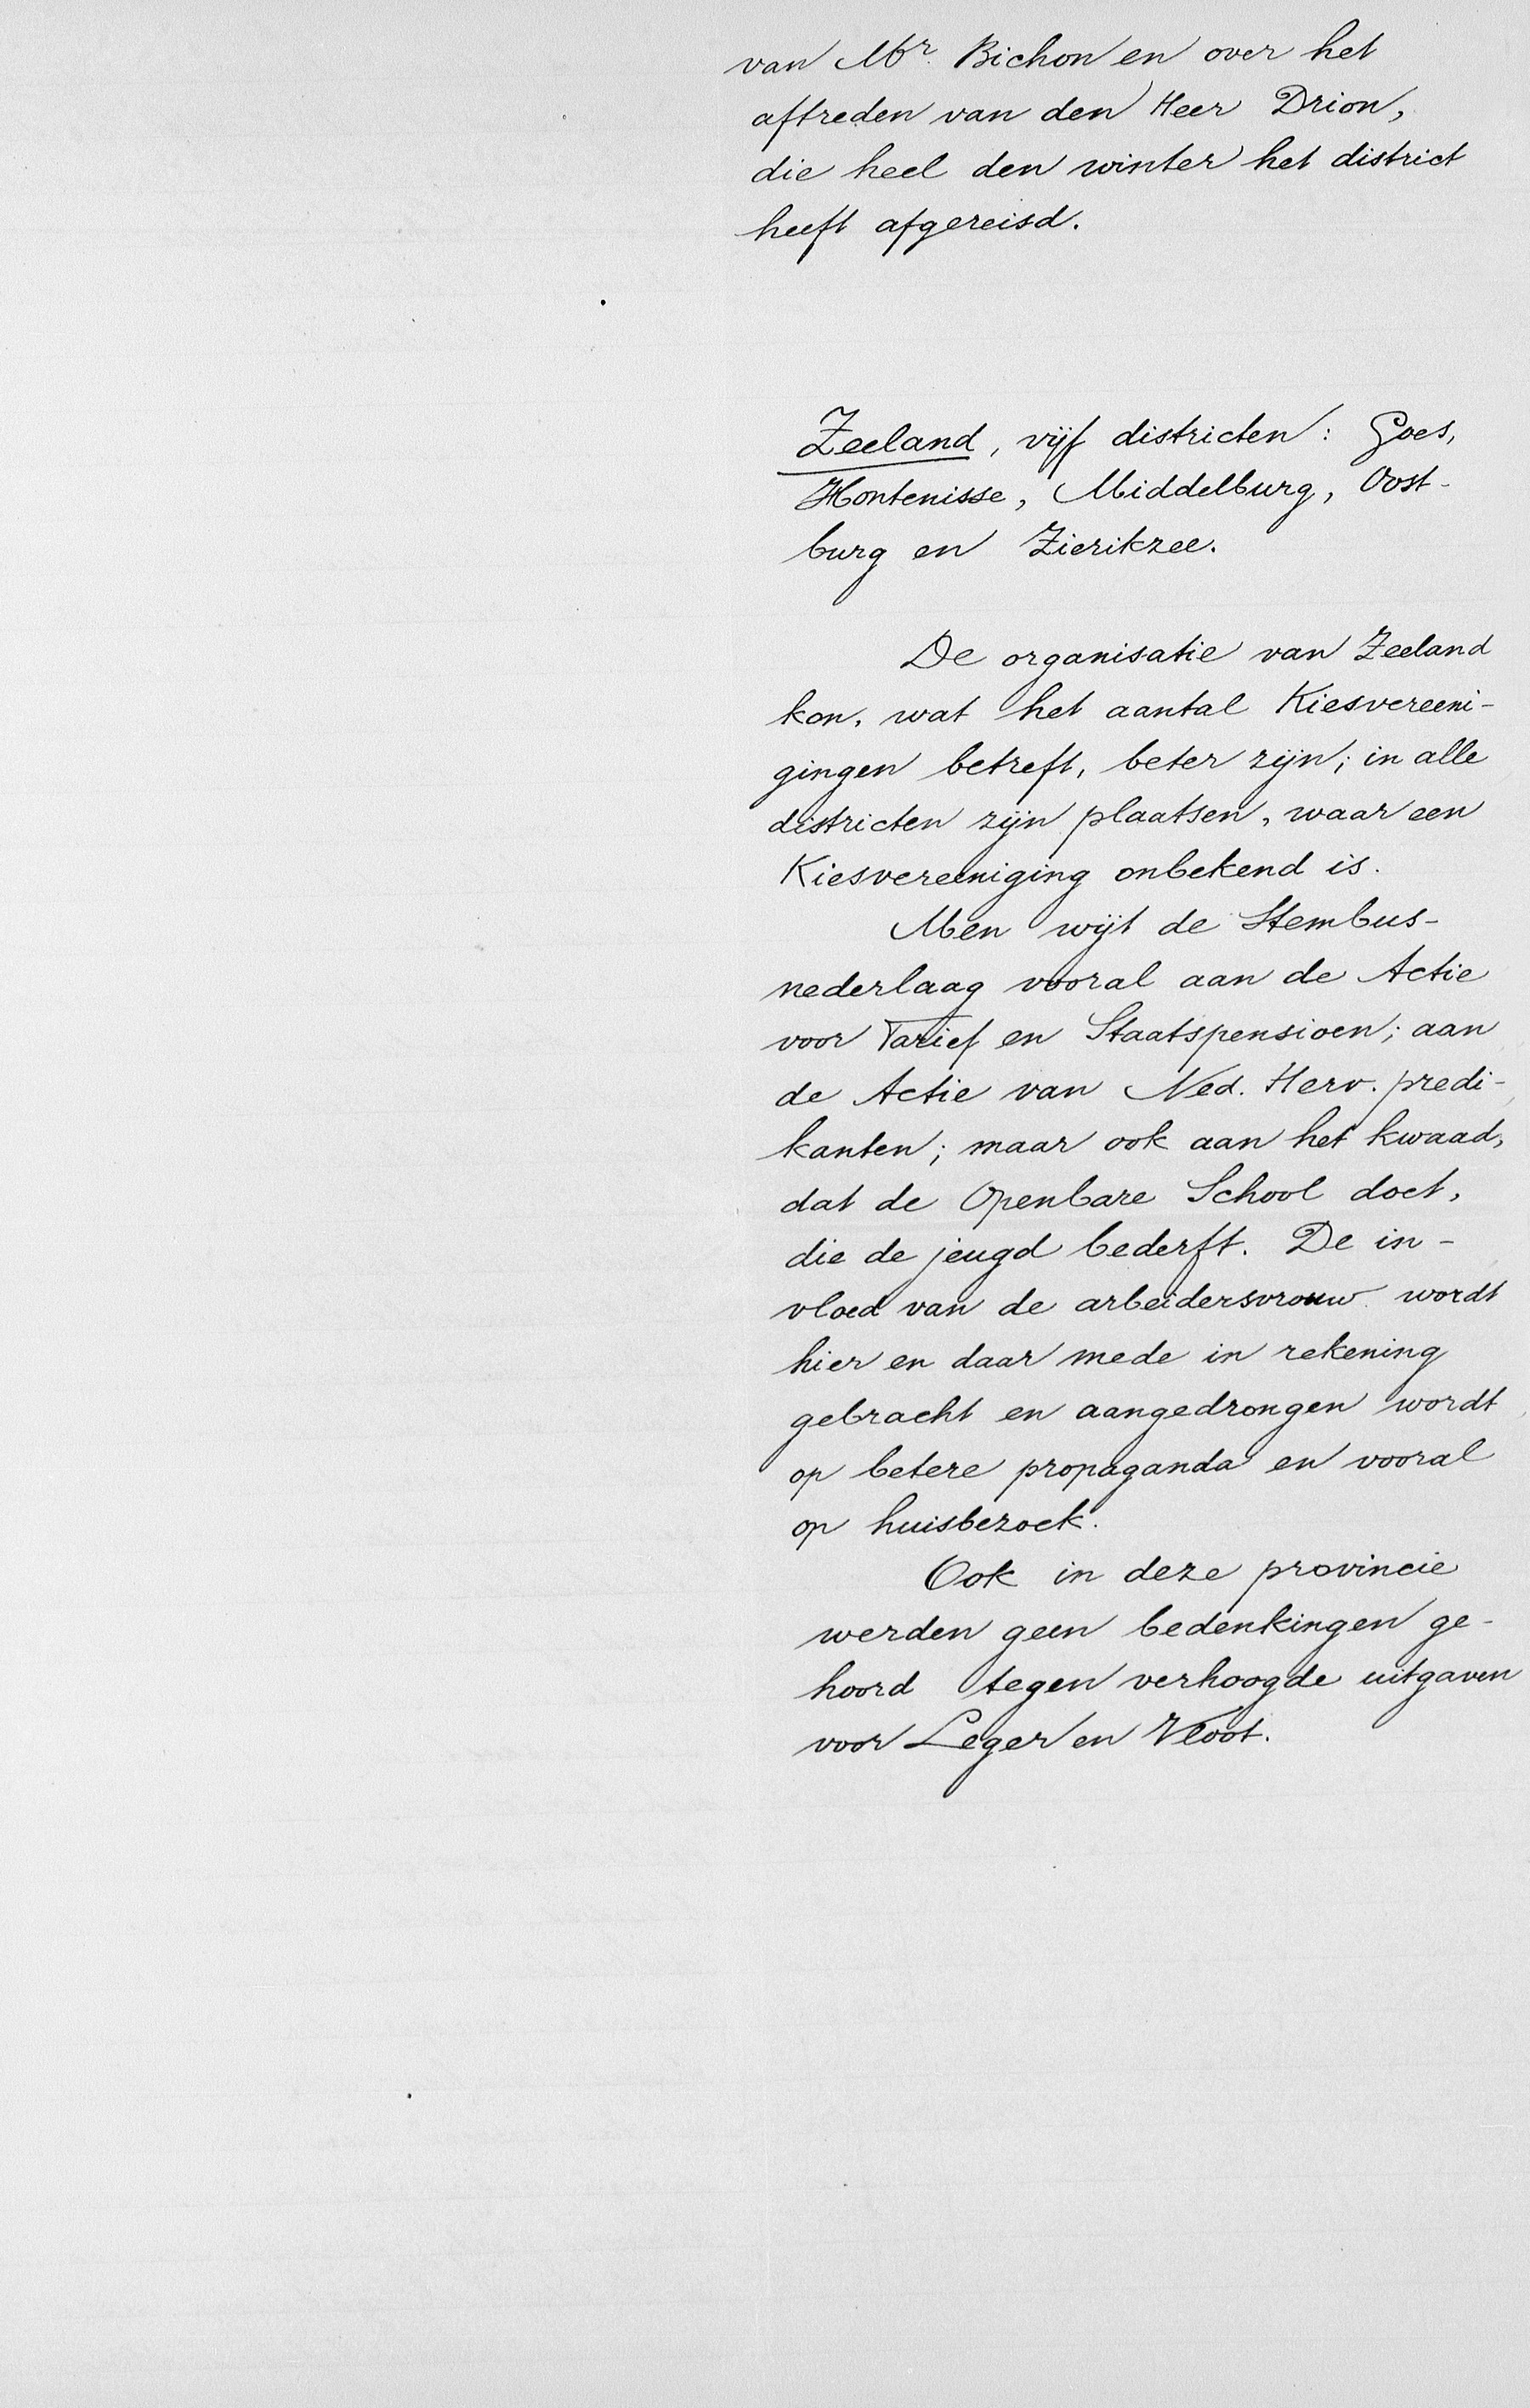 van Mr. Bichon en over het
aftreden van den Heer Drion,
die heel den winter het district
heeft afgereisd.
Zeeland, vijf districten: Goes,
Hontenisse, Middelburg, Oost-
burg en Zierikzee.
De organisatie van Zeeland
kon, wat het aantal Kiesvereeni-
gingen betreft, beter zijn; in alle
districten zijn plaatsen, waar een
Kiesvereeniging onbekend is.
Men wijt de Stembus-
nederlaag vooral aan de Actie
voor Tarief en Staatspensioen; aan
de Actie van Ned. Herv. predi-
kanten; maar ook aan het kwaad,
dat de Openbare School doet,
die de jeugd bederft. De in-
vloed van de arbeidersvrouw wordt
hier en daar mede in rekening
gebracht en aangedrongen wordt
op betere propaganda en vooral
op huisbezoek.
Ook in deze provincie
werden geen bedenkingen ge-
hoord tegen verhoogde uitgaven
voor Leger en Vloot.